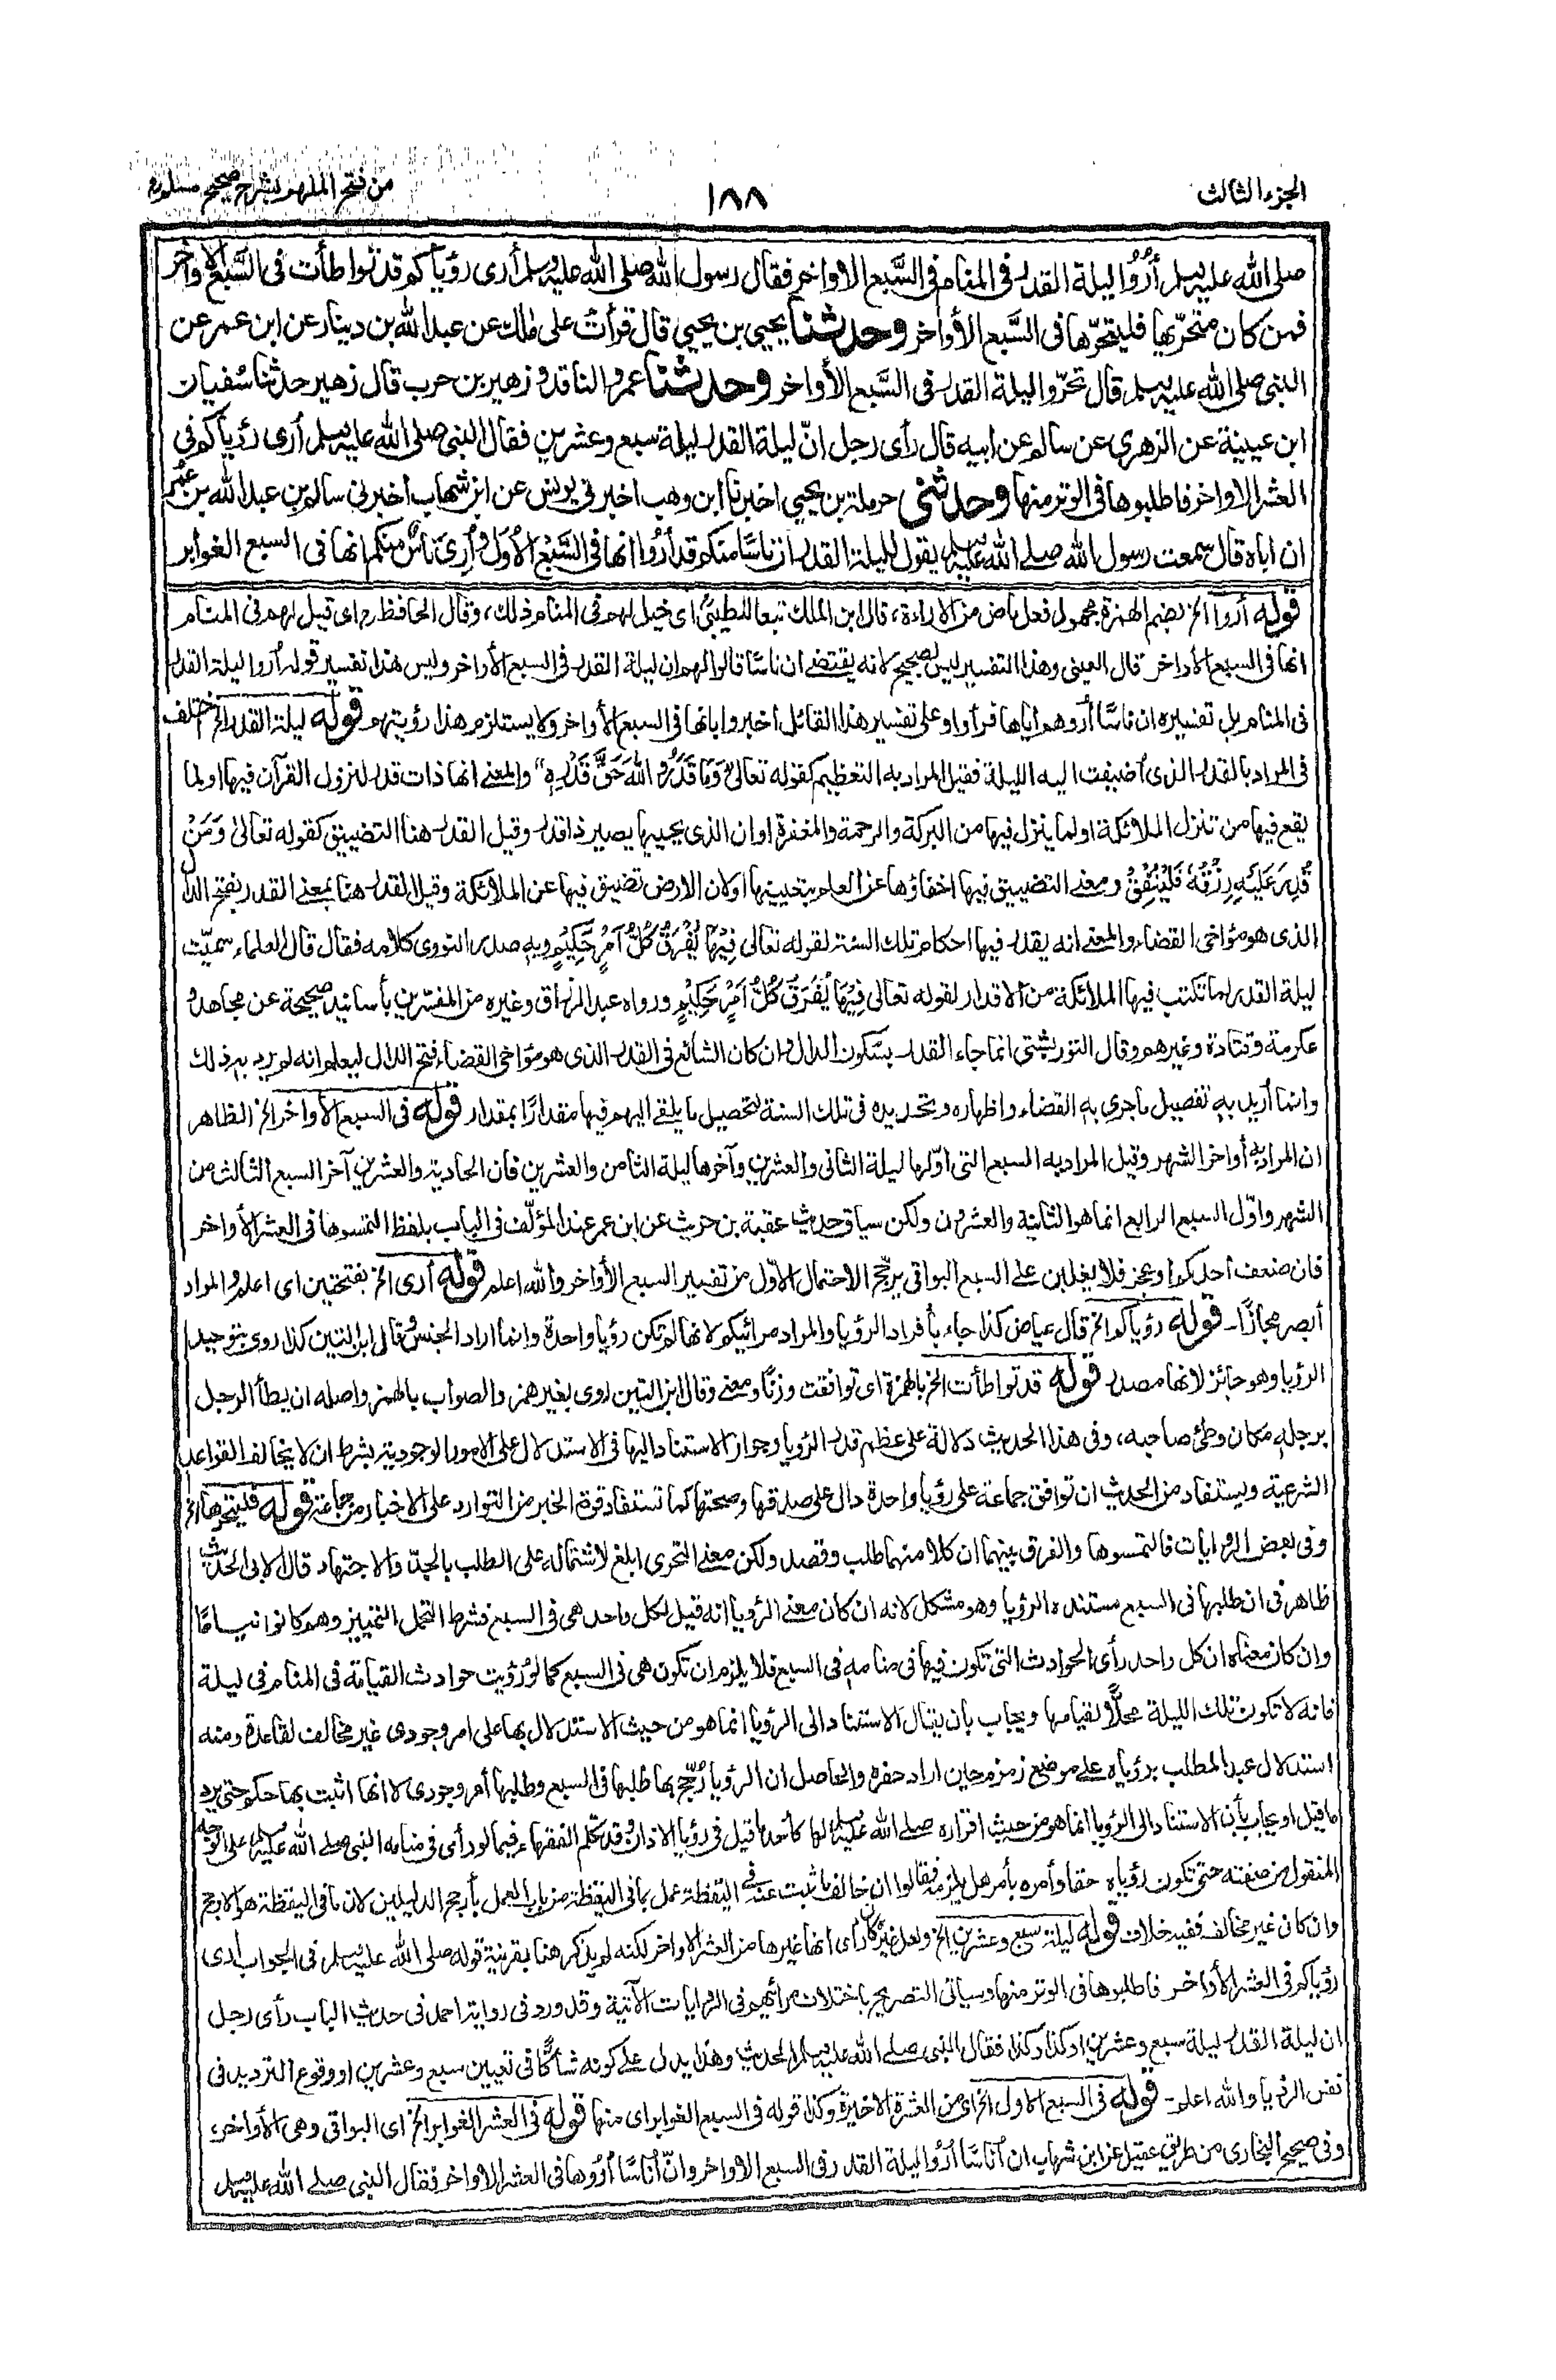 الجزء الثالث
١٨٨
من فتح الملهم بشرح صحيح مسلم
صلى الله عليه وسلم أُرُوا ليلة القدر في المنام في السَّبع الاواخر فقال رسول الله صلى الله عليه وسلم أرى رؤياكم قد تواطأت في السَّبع الاواخر
فمن كان متحرّيها فليتحرّها في السَّبع الأواخر وحدثنا يحيى بن يحيى قال قرأت على مالك عن عبد الله بن دينار عن ابن عمر عن
النبي صلى الله عليه وسلم قال تحرّوا ليلة القدر في السَّبع الأواخر وحدثنا عمرو الناقد وزهير بن حرب قال زهير حدثنا سفيان
ابن عيينة عن الزهري عن سالم عن ابيه قال رأى رجل انّ ليلة القدر ليلة سبع وعشرين فقال النبي صلى الله عليه وسلم أرى رؤياكم في
العشر الاواخر فاطلبوها في الوتر منها وحدثني حرملة بن يحيى اخبرنا ابن وهب اخبرني يونس عن ابن شهاب اخبرني سالم بن عبد الله بن عمر
ان اباه قال سمعت رسول الله صلى الله عليه وسلم يقول لليلة القدر ان ناسًا منكم قد أُرُوا انها في السَّبْع الأُوَل وأُرِيَ ناسٌ منكم انها في السبع الغوابر
قوله أروا الخ بضم الهمزة مجهول فعل ماض من الاراءة، قال ابن الملك تبعا للطيبيّ اى خيل لهم في المنام ذلك، وقال الحافظ رح اى قيل لهم في المنام
انها في السبع الأواخر قال العيني وهذا التفسير ليس بصحيح لانه يقتضي ان ناسًا قالوا لهم ان ليلة القدر في السبع الأواخر وليس هذا تفسير قوله أروا ليلة القدر
في المنام بل تفسيره ان ناسًا أروهم اياها فرأوا وعلى تفسير هذا القائل اخبروا بانها في السبع الأواخر ولا يستلزم هذا رؤيتهم قوله ليلة القدر الخ اختلف
في المراد بالقدر الذى أضيفت اليه الليلة فقيل المراد به التعظيم كقوله تعالى وَمَا قَدَرُوا اللهَ حَقَّ قَدْرِهِ" والمعنى انها ذات قدر لنزول القرآن فيها او لما
يقع فيها من تنزل الملائكة او لما ينزل فيها من البركة والرحمة والمغفرة او ان الذى يحييها يصير ذا قدر وقيل القدر هنا التضييق كقوله تعالى وَمَنْ
قُدِرَ عَلَيْهِ رِزْقُهُ فَلْيُنْفِقْ ومعنى التضييق فيها اخفاؤها عن العلم بتعيينها او لان الارض تضيق فيها عن الملائكة وقيل القدر هنا بمعنى القدر بفتح الدال
الذى هو مؤاخى القضاء والمعنى انه يقدر فيها احكام تلك السنة لقوله تعالى فِيْهَا يُفْرَقُ كُلُّ اَمْرٍ حَكِيْمٍ وبه صدر النووى كلامه فقال قال العلماء سمّيت
ليلة القدر لما تكتب فيها الملائكة من الاقدار لقوله تعالى فِيْهَا يُفْرَقُ كُلُّ اَمْرٍ حَكِيْمٍ ورواه عبد الرزاق وغيره من المفسّرين بأسانيد صحيحة عن مجاهد و
عكرمة وقتادة وغيرهم وقال التوربشتى انما جاء القدر بسكون الدال وان كان الشائع في القدر الذى هو مؤاخى القضاء فتح الدال ليعلم انه لم يرد به ذلك
وانما أريد به تفصيل ما جرى به القضاء واظهاره وتحديده في تلك السنة لتحصيل ما يلقى اليهم فيها مقدارًا بمقدار قوله في السبع الأواخر الخ الظاهر
ان المراد به أواخر الشهر وقيل المراد به السبع التى أوّلها ليلة الثانى والعشرين وآخرها ليلة الثامن والعشرين فان الحادية والعشرين آخر السبع الثالث من
الشهر واوّل السبع الرابع انما هو الثانية والعشرون ولكن سياق حديث عقبة بن حريث عن ابن عمر عند المؤلّف في الباب بلفظ التمسوها في العشر الأواخر
فان ضعف أحدكم او عجز فلا يغلبن على السبع البواقى يرجّح الاحتمال الأوّل من تفسير السبع الأواخر والله اعلم قوله أرى الخ بفتحتين اى اعلم والمراد
أبصر مجازًا۔ قوله رؤياكم الخ قال عياض كذا جاء بأفراد الرؤيا والمراد مرائيكم لانها لم تكن رؤيا واحدة وانما اراد الجنس وقال ابن التين كذا روى بتوحيد
الرؤيا وهو جائز لانها مصدر قوله قد تواطأت الخ بالهمزة اى توافقت وزنًا ومعنى وقال ابن التين روى بغير همز والصواب بالهمز واصله ان يطأ الرجل
برجله مكان وطئ صاحبه، وفى هذا الحديث دلالة على عظم قدر الرؤيا وجواز الاستناد اليها في الاستدلال على الامور الوجودية بشرط ان لا يخالف القواعد
الشرعية ويستفاد من الحديث ان توافق جماعة على رؤيا واحدة دال على صدقها وصحتها كما تستفاد قوة الخبر من التوارد على الاخبار من جماعة قوله فليتحرها الخ
وفى بعض الروايات فالتمسوها والفرق بينهما ان كلا منهما طلب وقصد ولكن معنى التحرى ابلغ لاشتماله على الطلب بالجدّ والاجتهاد قال الابى الحديث
ظاهر في ان طلبها في السبع مستنده الرؤيا وهو مشكل لانه ان كان معنى الرؤيا انه قيل لكل واحد هى في السبع فشرط التحمل التمييز وهم كانوا نيامًا
وان كان معناه ان كل واحد رأى الحوادث التى تكون فيها في منامه في السبع فلا يلزم ان تكون هى في السبع كما لو رؤيت حوادث القيامة في المنام في ليلة
فانه لا تكون تلك الليلة محلًّا لقيامها ويجاب بان يقال الاستناد الى الرؤيا انما هو من حيث الاستدلال بها على امر وجودى غير مخالف لقاعدة ومنه
استدلال عبد المطلب برؤياه على موضع زمزم حين اراد حفره والحاصل ان الرؤيا رُجّح بها طلبها في السبع وطلبها أمر وجودى لا انها اثبت بها حكم حتى يرد
ما قيل او يجاب بأن الاستناد الى الرؤيا انما هو من حيث اقراره صلى الله عليه وسلم لها كأحد ما قيل في رؤيا الاذان وقد تكلم الفقهاء فيما لو رأى في منامه النبى صلى الله عليه وسلم على الوجه
المنقول من صفته حتى تكون رؤياه حقا وأمره بأمر هل يلزمه فقالوا ان خالف ما ثبت عنه في اليقظة عمل بما في اليقظة من باب العمل بأرجح الدليلين لان ما في اليقظة هو الارجح
وان كان غير مخالف ففيه خلاف قوله ليلة سبع وعشرين الخ ولعل غيره كان رأى انها غيرها من العشر الاواخر لكنه لم يذكر هنا بقرينة قوله صلى الله عليه وسلم في الجواب أرى
رؤياكم في العشر الأواخر فاطلبوها في الوتر منها وسيأتى التصريح باختلاف مرائيهم في الروايات الآتية وقد ورد في رواية احمد في حديث الباب رأى رجل
ان ليلة القدر ليلة سبع وعشرين او كذا وكذا فقال النبى صلى الله عليه وسلم الحديث وهذا يدل على كونه شاكًّا في تعيين سبع وعشرين او وقوع الترديد في
نفس الرؤيا والله اعلم۔ قوله في السبع الاول الخ اى من العشرة الاخيرة وكذا قوله في السبع الغوابر اى منها قوله في العشر الغوابر الخ اى البواقى وهى الأواخر،
وفى صحيح البخارى من طريق عقيل عن ابن شهاب ان أناسًا أُرُوا ليلة القدر في السبع الاواخر وانّ أُناسًا أُرُوها في العشر الاواخر فقال النبى صلى الله عليه وسلم